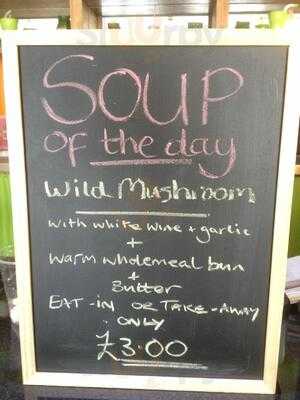 SOUP
of the day
Wild Mushroom
with white wine + garlic
+
warm wholemeal bun
+
Butter
EAT-IN OR TAKE-AWAY
ONLY
£3.00